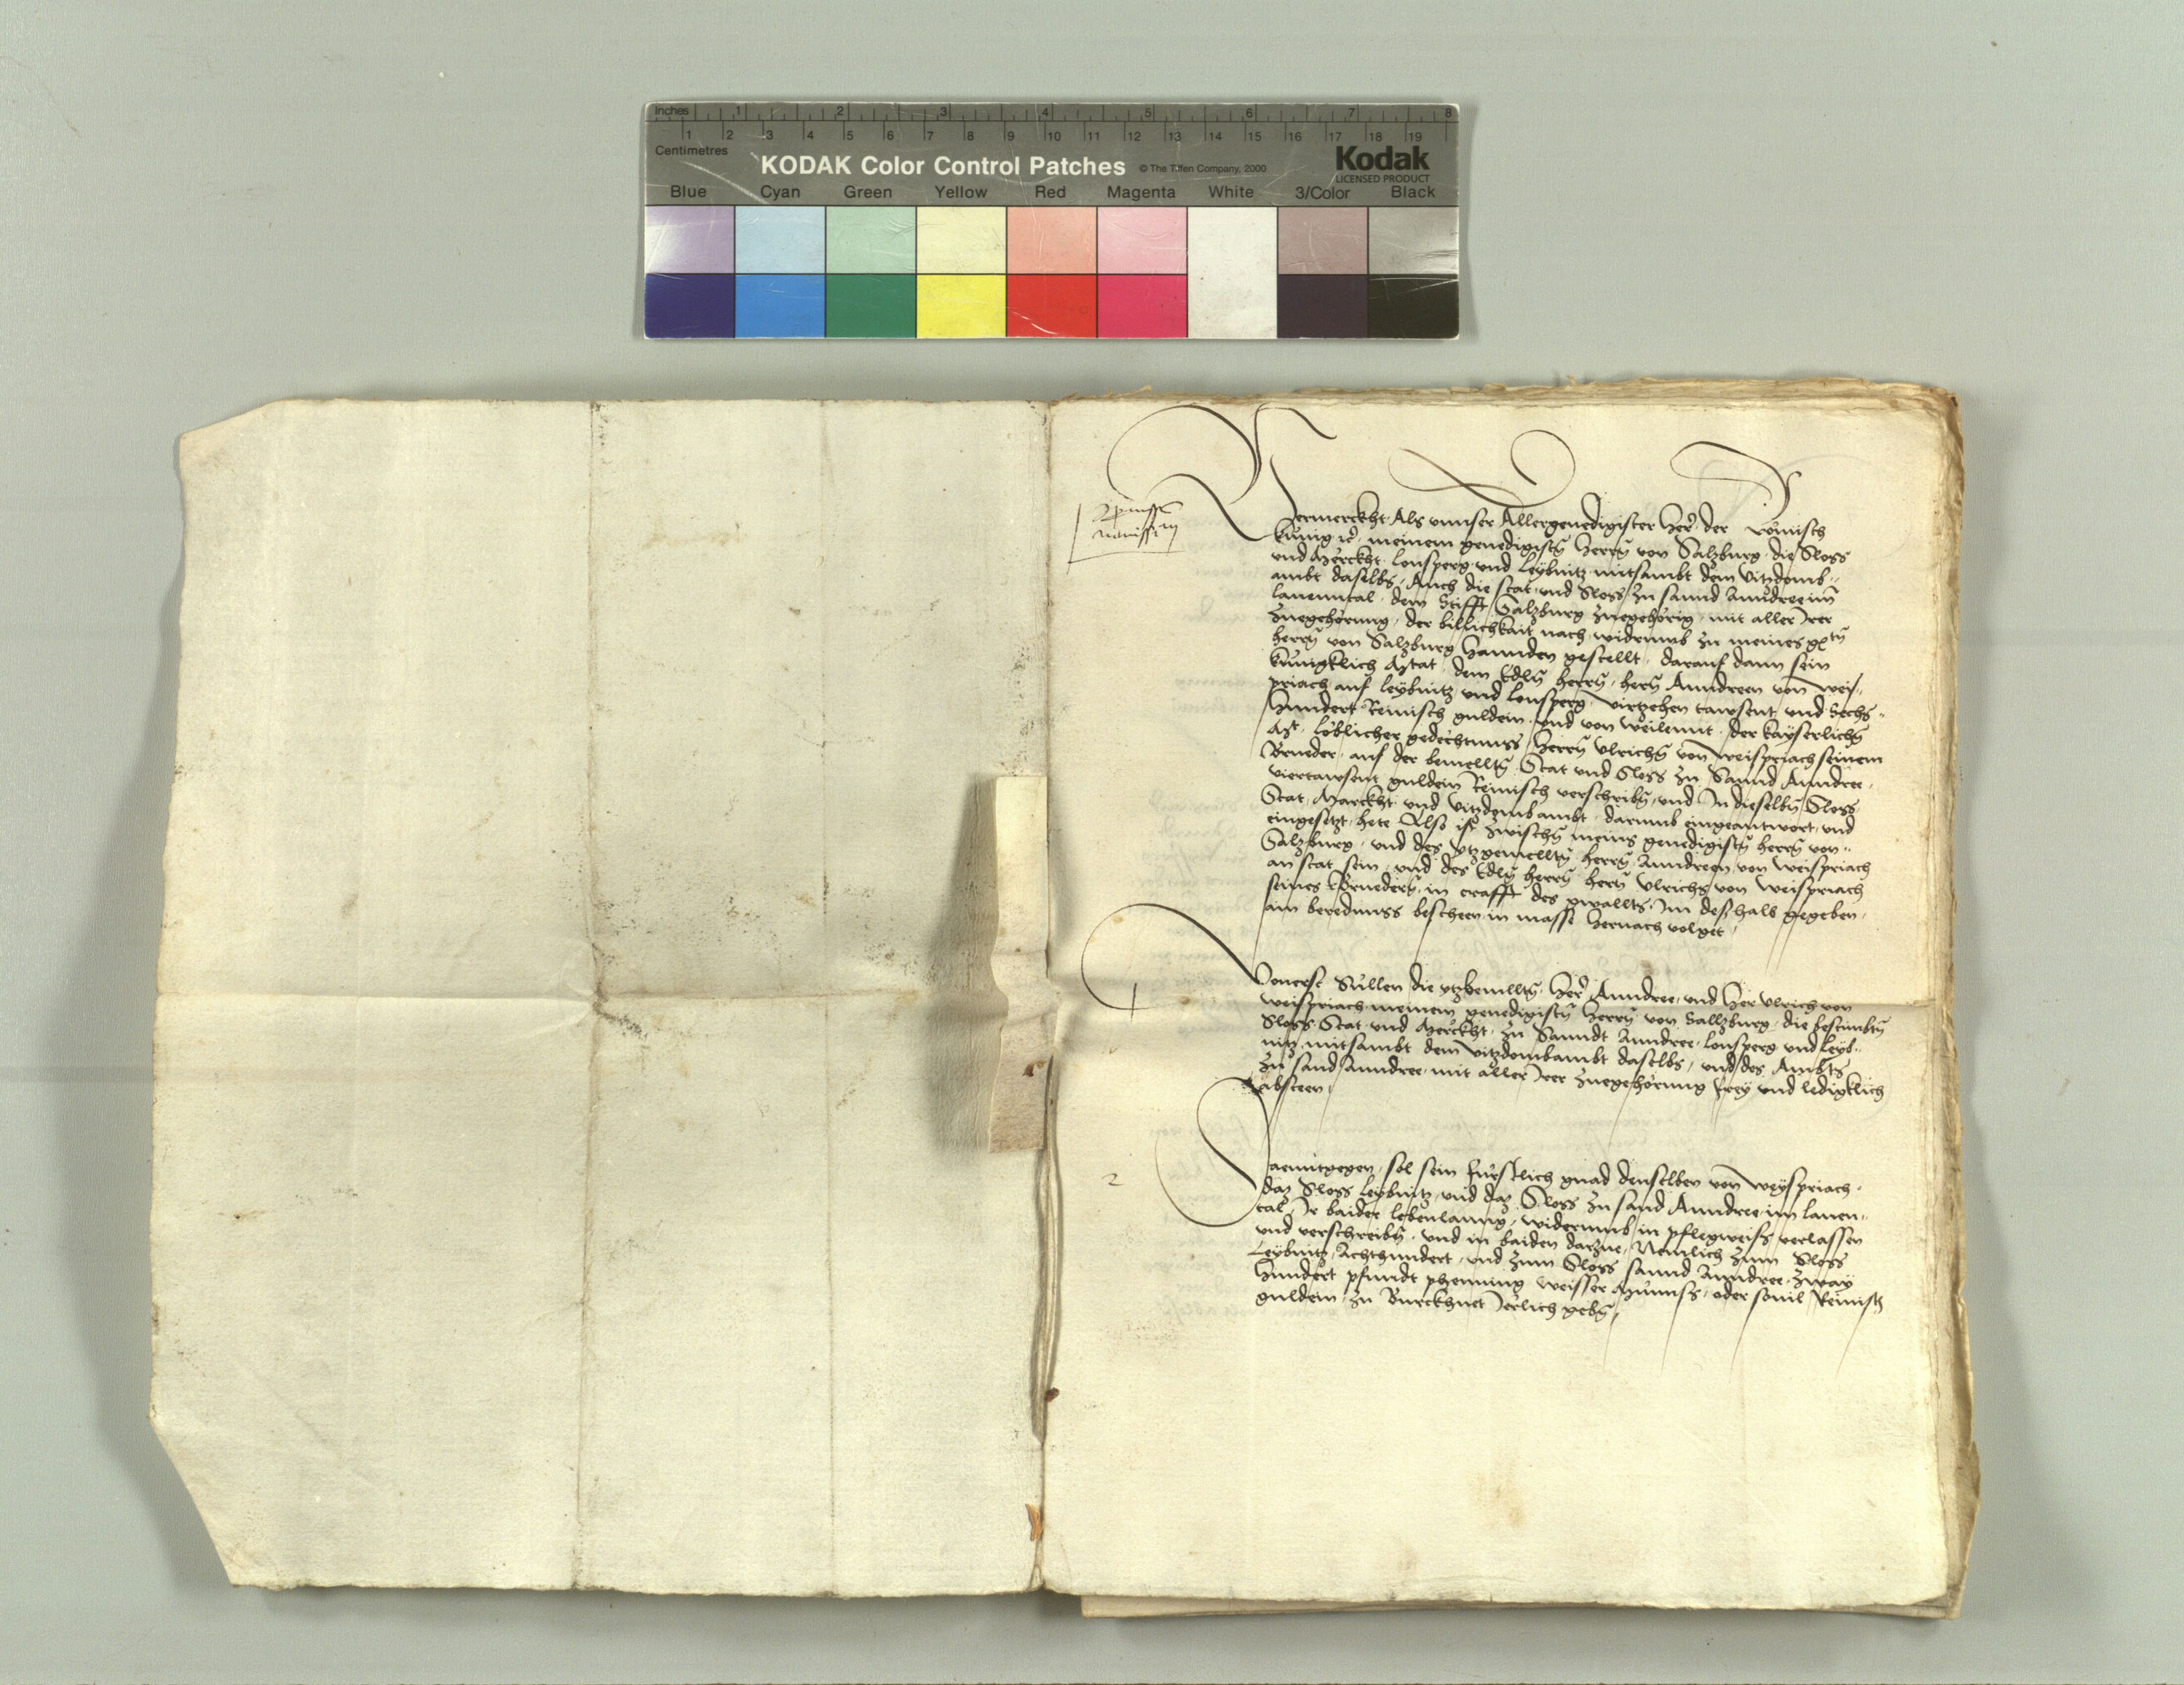 Inches 1 2 3 4 5 6 7 8
1 2 3 4 5 6 7 8 9 10 11 12 13 14 15 16 17 18 19
Centimetres
KODAK Color Control Patches © The Tiffen Company, 2000 Kodak
LICENSED PRODUCT
Blue Cyan Green Yellow Red Magenta White 3/Color Black
Vermerckht Als unnser Allergenedigister Her der Römisch
künig meinem genedigistn herrn von Salzburg die Sloss
und Merckht Lonsperg und Leybnitz mitsambt dem Vitzdomb-
ambt daselbs, Auch die stat und Sloss zu sannd Anndree im
Lauenntal, dem Stifft Salzburg zuegehörig, mit aller Irer
Zuegehörung, der billichkait nach widerumb zu meines
herrn von Salzburg hannden gestellt, darauf dann sein
künigklich Mtat, dem Edln herrn, hern Anndreen von Weis-
priach auf Leybnitz und Lonsperg, virtzehen tawsent und Sechs-
hundert Reinisch guldein, und von weilennt der kayserlichn
Mt, löblicher gedechtnuss, herrn Ulrichn von Weispriach seinem
Brueder, auf der bemelltn Stat und Sloss zu Sannd Anndree,
viertawsent guldein Reinisch verschribn, und In dieselbn Sloss
Stat, Marckht und Vitzdombambt, darumb eingeantwort, und
eingesetzt, hete Also ist zwischn meins genedigistn herrn von-
Salzburg, und des ytzgemelltn herrn Anndreen von Weispriach
an stat sein, und des Edln herrn hern Ulrichs von Weispriach
seines Bruedern, in crafft des gwallts, Im desshalb gegeben,
ain berednuss bescheen, in masse hernach volget,
1
Vonerst Süllen die ytzbemelltn, Her Anndree, und Her Ulrich von
Weispriach meinem genedigistn herrn von Sallzburg, die bestimbtn
Sloss, Stat, und Merckht, zu Sanndt Anndree, Lonsperg und Leyb-
nitz, mitsambt dem Vitzdombambt daselbs, und des Ambts
zu sand Anndree, mit aller Irer zuegehörung frey und ledigklich
absteen,
2
Daenntgegen, sol sein fürstlich gnad denselben von Weyspriach,
das Sloss Leybnitz, und das Sloss zu sand Anndree, im Lauen-
tal, Ir baider lebenlanng, widerumb in pflegweiss verlassen
und verschreibn, und in baiden darzue, Nemlich zum Sloss
Leybnitz, Achthundert, und zum Sloss sannd Anndree, zway
hundert pfundt phenning weisser Münnss, oder souil Reinisch
guldein, zu Burckhuet Jerlich gebn,